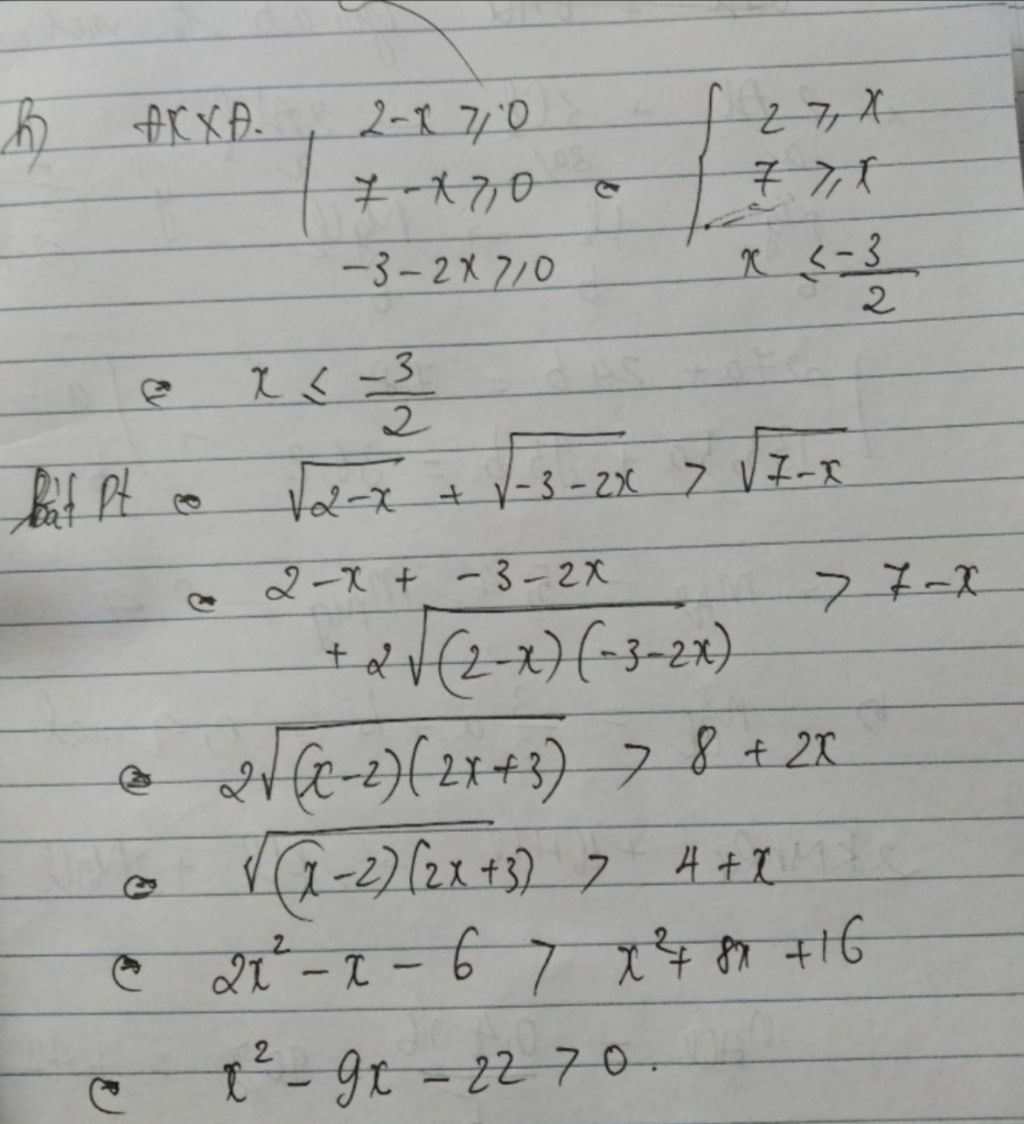 h) ĐKXĐ. 2-x ≥ 0 2 ≥ x
7 - x ≥ 0 ⇔ 7 ≥ x
-3 - 2x ≥ 0 x ≤ -3/2
⇔ x ≤ -3/2
Bất Pt ⇔ √(2-x) + √(-3-2x) > √(7-x)
⇔ 2-x + -3-2x > 7-x
+ 2√((2-x)(-3-2x))
⇔ 2√((x-2)(2x+3)) > 8 + 2x
⇔ √((x-2)(2x+3)) > 4+x
⇔ 2x² - x - 6 > x² + 8x + 16
⇔ x² - 9x - 22 > 0.